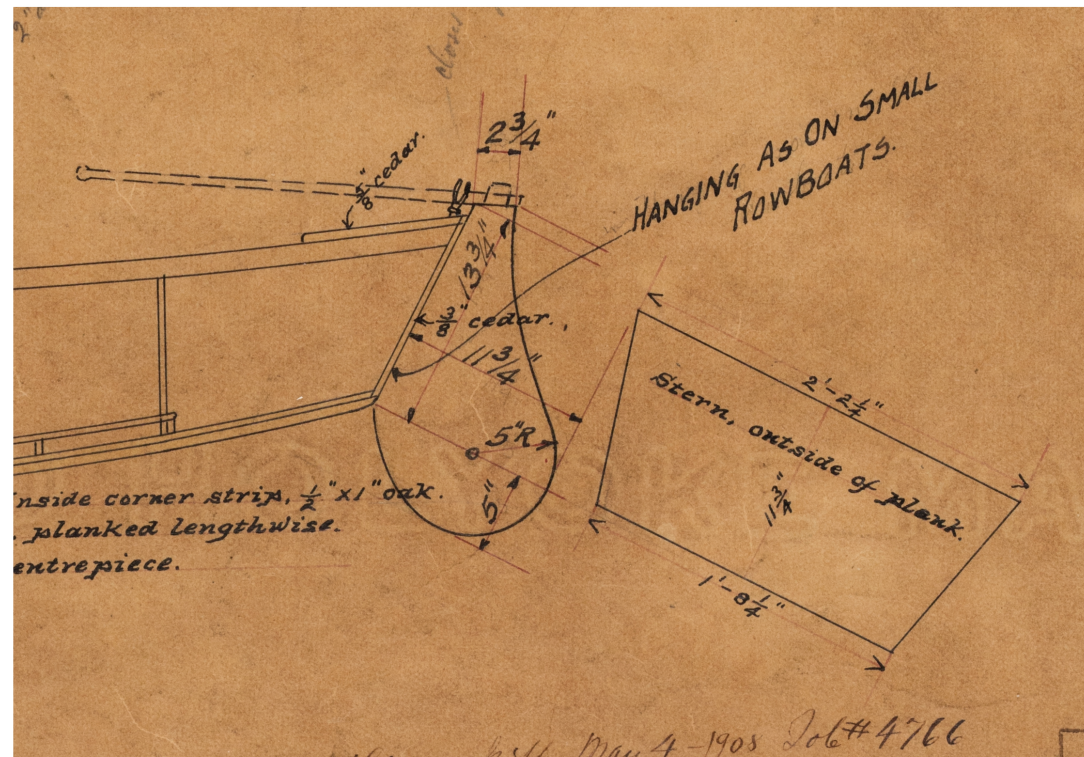 2"
close
2 3/4"
5/8" cedar.
HANGING AS ON SMALL
ROWBOATS.
13 3/4"
3/8" cedar.
11 3/4"
5"R
5"
2'-2 1/4"
Stern, outside of plank.
11 3/4"
1'-8 1/4"
Inside corner strip, 1/2" x 1" oak.
planked lengthwise.
entrepiece.
May 4-1908 Job# 4766